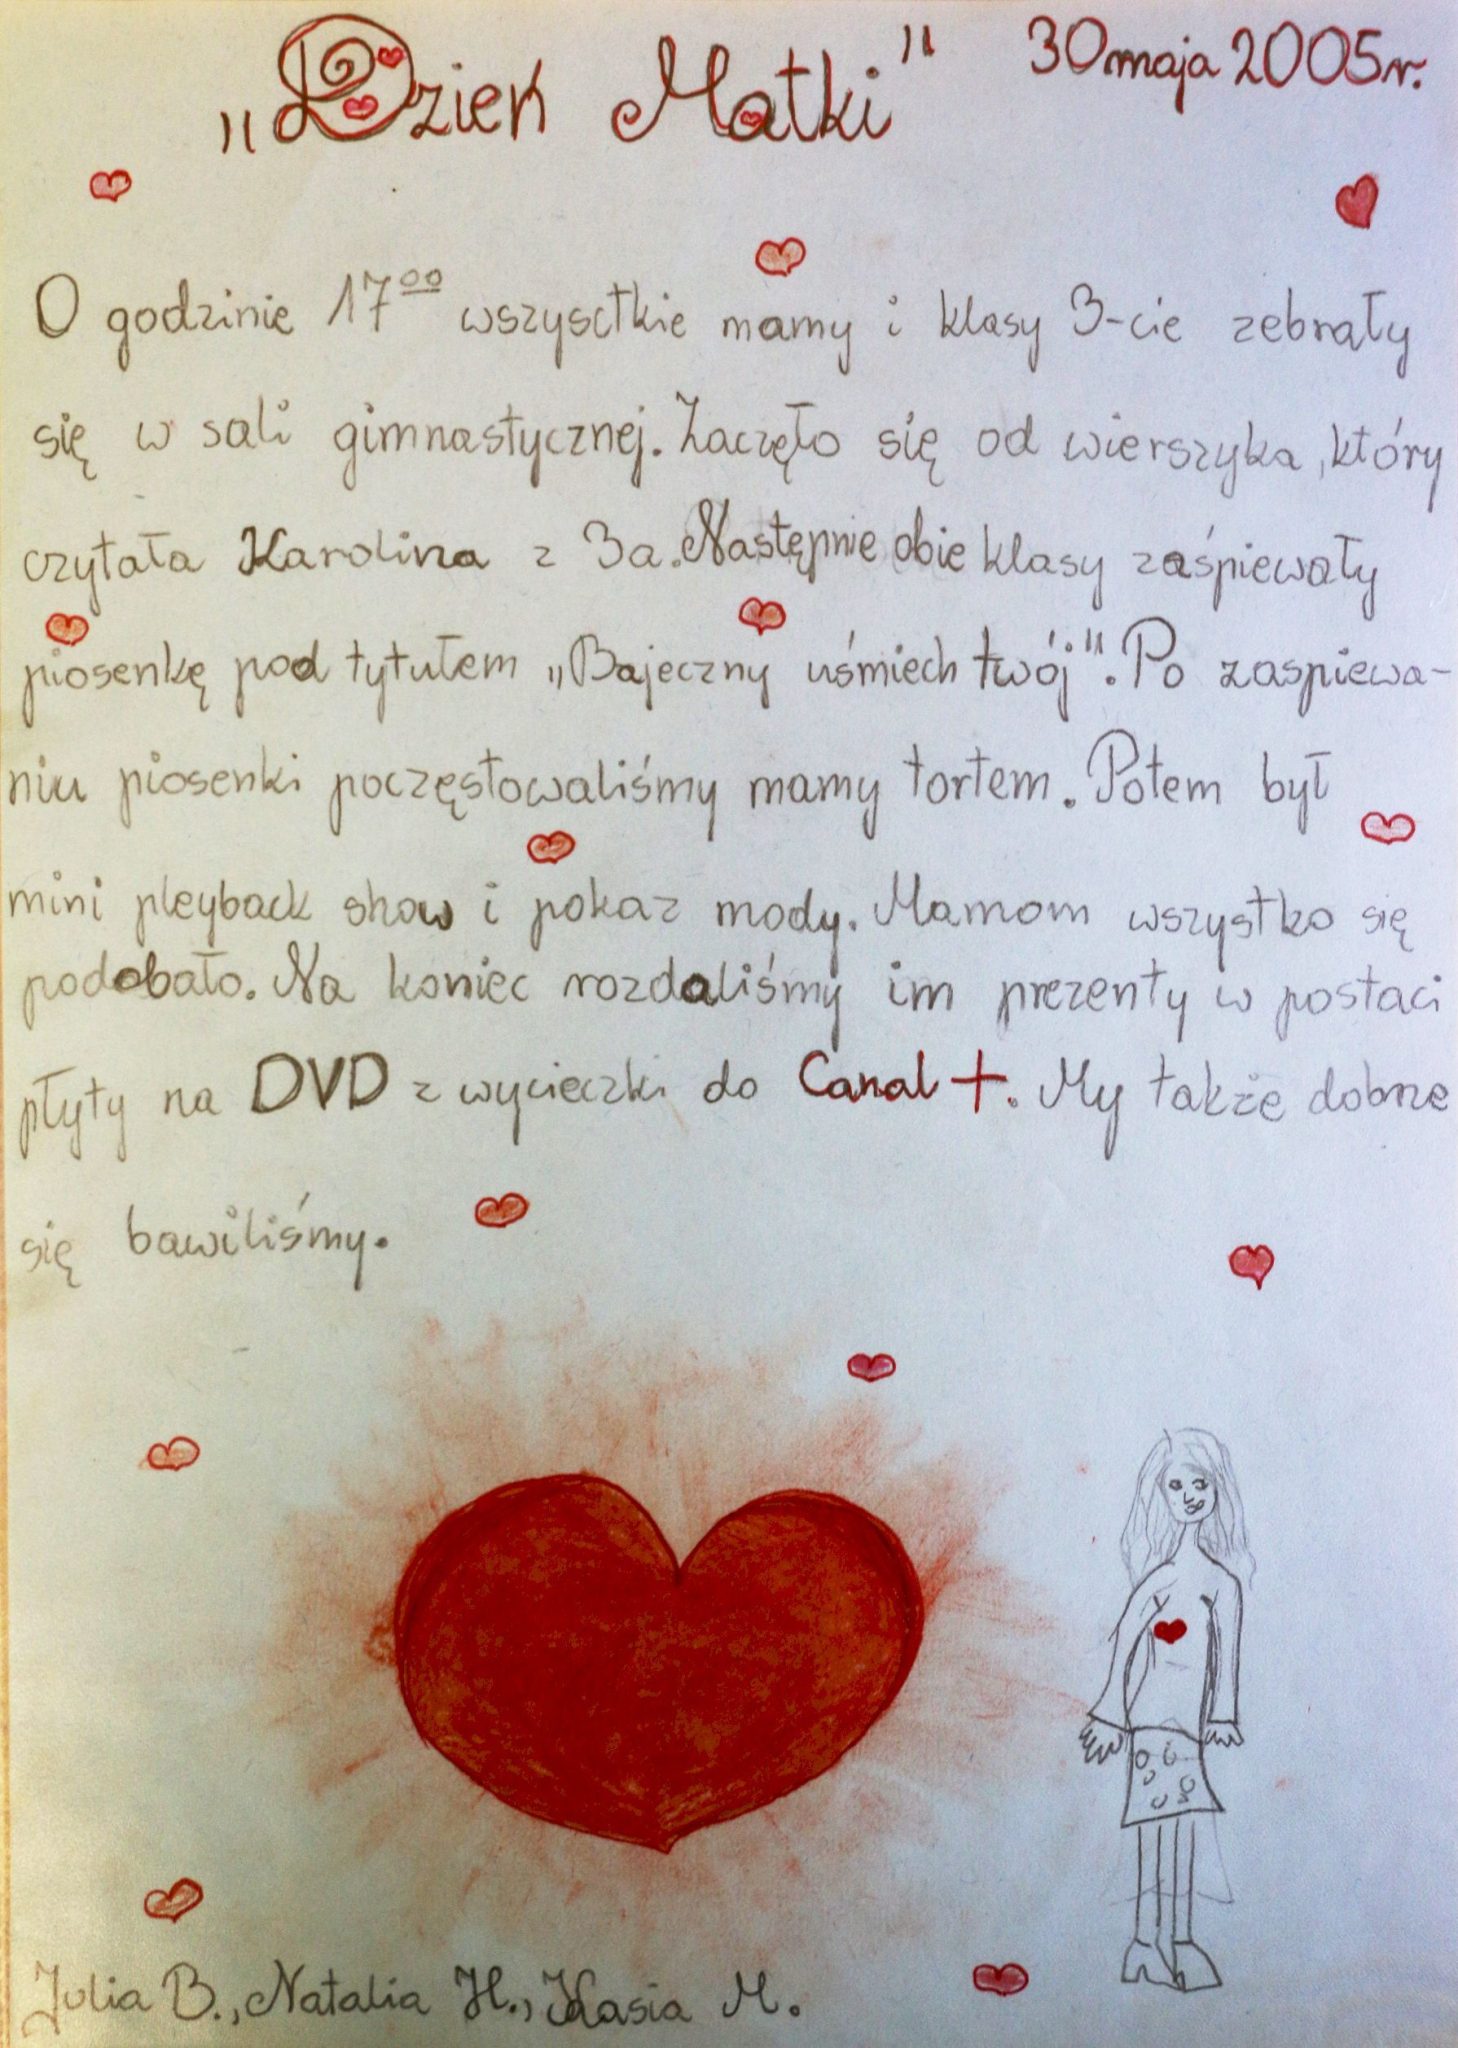 „Dzień Matki" 30 maja 2005r.
O godzinie 17⁰⁰ wszysctkie mamy i klasy 3-cie zebrały
się w sali gimnastycznej. Zaczęło się od wierszyka, który
czytała Karolina z 3a. Następnie obie klasy zaśpiewały
piosenkę pod tytułem „Bajeczny uśmiech twój". Po zaspiewa-
niu piosenki poczęstowaliśmy mamy tortem. Potem był
mini pleyback show i pokaz mody. Mamom wszystko się
podobało. Na koniec rozdaliśmy im prezenty w postaci
płyty na DVD z wycieczki do Canal +. My także dobrze
się bawiliśmy.
Julia B., Natalia H., Kasia M.